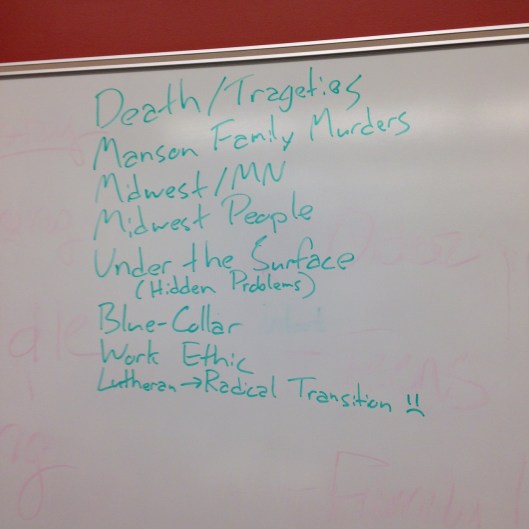 Death/Trageties
Manson Family Murders
Midwest/MN
Midwest People
Under the Surface
(Hidden Problems)
Blue-Collar
Work Ethic
Lutheran→Radical Transition !!